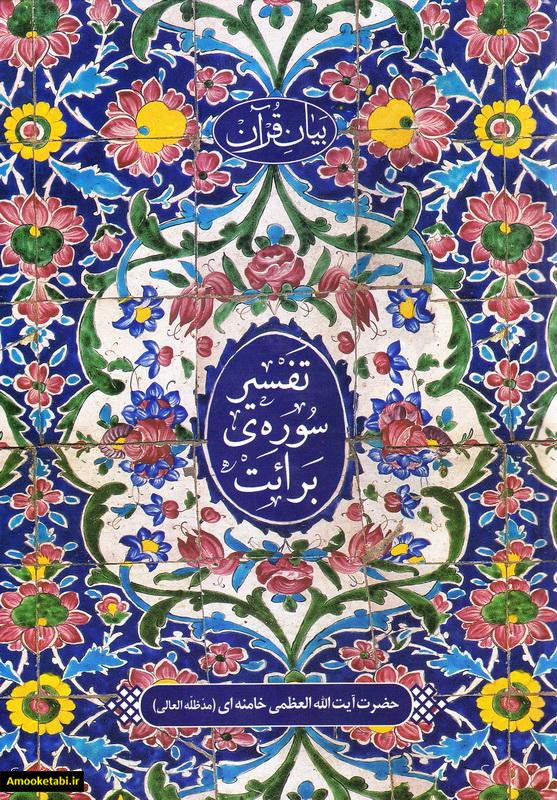 بیان قرآن
تفسیر
سوره‌ی
برائت
حضرت آیت الله العظمی خامنه ای (مدظله العالی)
Amooketabi.ir